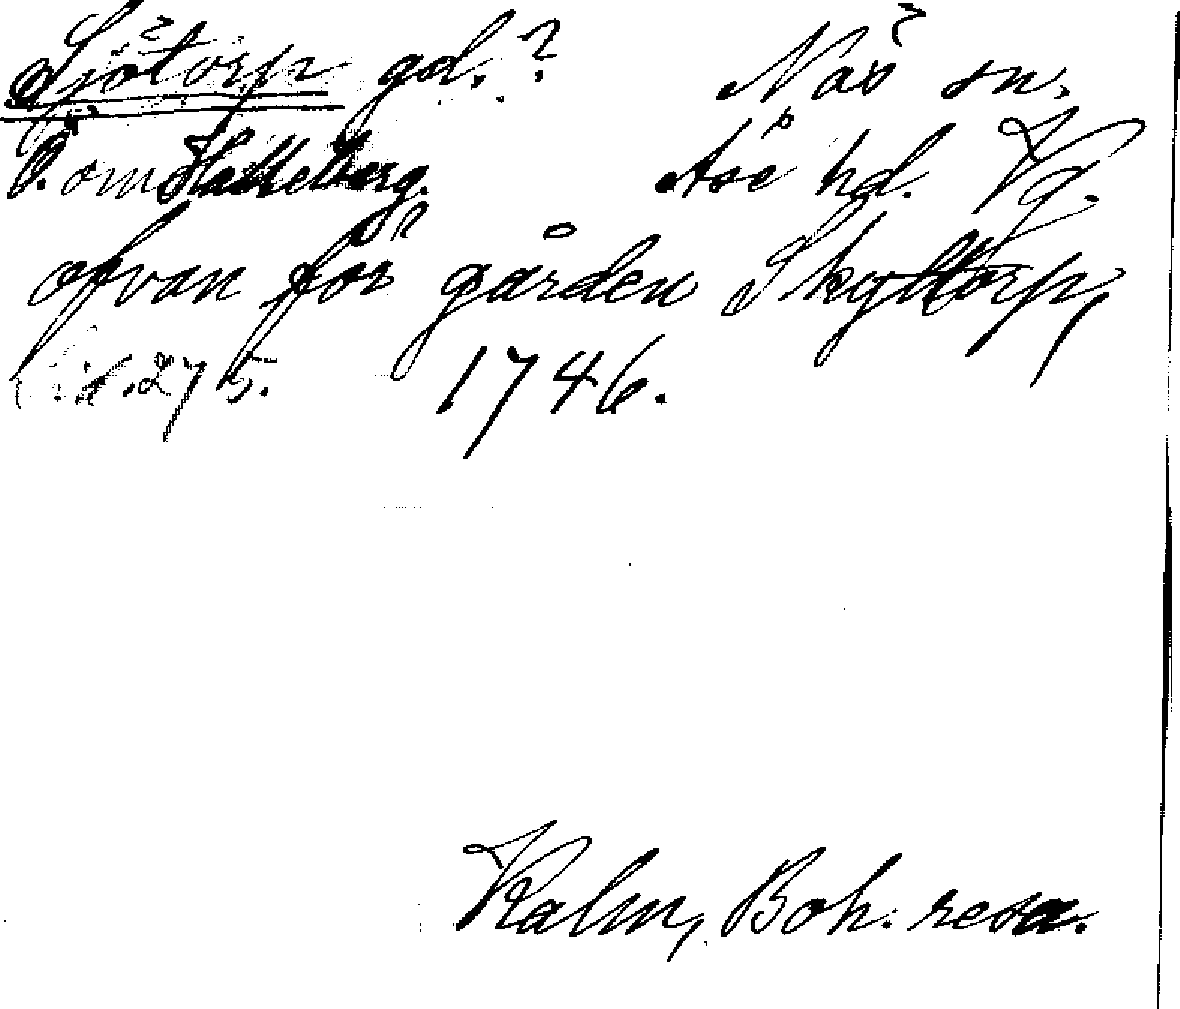 Sjötorp gd.? Näs sn.
Ö. om Åse hd. Vg.
ofvan för gården Skyttorp,
275. 1746.
Kalm, Boh. resa.